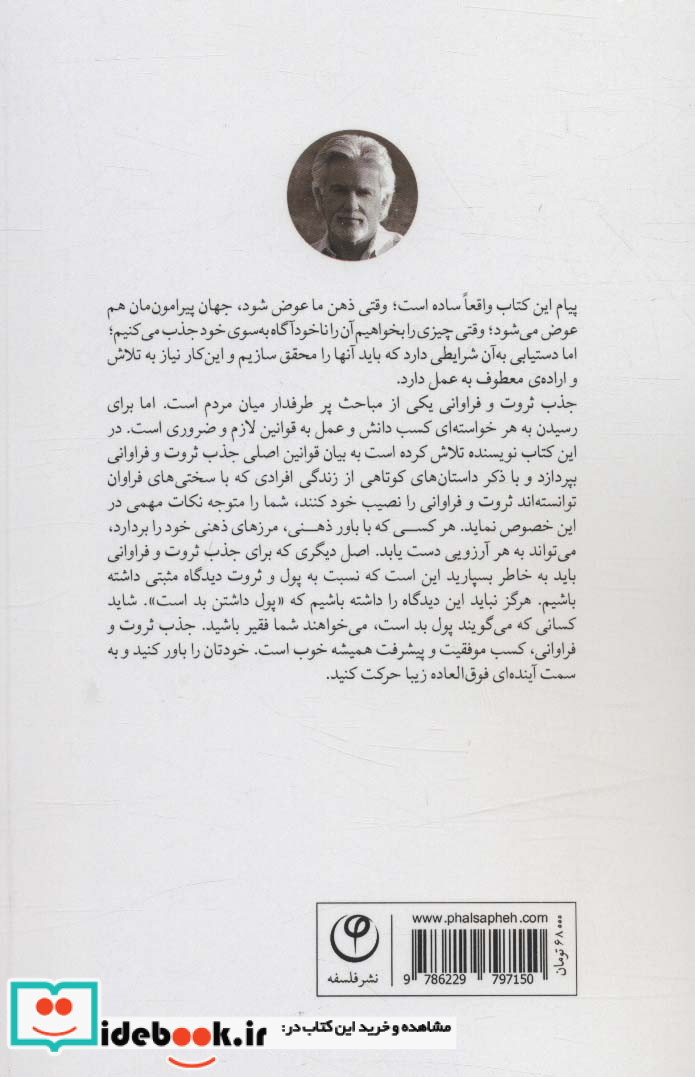 پیام این کتاب واقعاً ساده است؛ وقتی ذهن ما عوض شود، جهان پیرامون‌مان هم
عوض می‌شود؛ وقتی چیزی را بخواهیم آن را ناخودآگاه به‌سوی خود جذب می‌کنیم؛
اما دستیابی به‌آن شرایطی دارد که باید آنها را محقق سازیم و این‌کار نیاز به تلاش
و اراده‌ی معطوف به عمل دارد.
جذب ثروت و فراوانی یکی از مباحث پر طرفدار میان مردم است. اما برای
رسیدن به هر خواسته‌ای کسب دانش و عمل به قوانین لازم و ضروری است. در
این کتاب نویسنده تلاش کرده است به بیان قوانین اصلی جذب ثروت و فراوانی
بپردازد و با ذکر داستان‌های کوتاهی از زندگی افرادی که با سختی‌های فراوان
توانسته‌اند ثروت و فراوانی را نصیب خود کنند، شما را متوجه نکات مهمی در
این خصوص نماید. هر کسی که با باور ذهنی، مرزهای ذهنی خود را بردارد،
می‌تواند به هر آرزویی دست یابد. اصل دیگری که برای جذب ثروت و فراوانی
باید به خاطر بسپارید این است که نسبت به پول و ثروت دیدگاه مثبتی داشته
باشیم. هرگز نباید این دیدگاه را داشته باشیم که «پول داشتن بد است». شاید
کسانی که می‌گویند پول بد است، می‌خواهند شما فقیر باشید. جذب ثروت و
فراوانی، کسب موفقیت و پیشرفت همیشه خوب است. خودتان را باور کنید و به
سمت آینده‌ای فوق‌العاده زیبا حرکت کنید.
www.phalsapheh.com
۶۸۰۰۰ تومان
9 786229 797150
نشر فلسفه
مشاهده و خرید این کتاب در:
idebook.ir